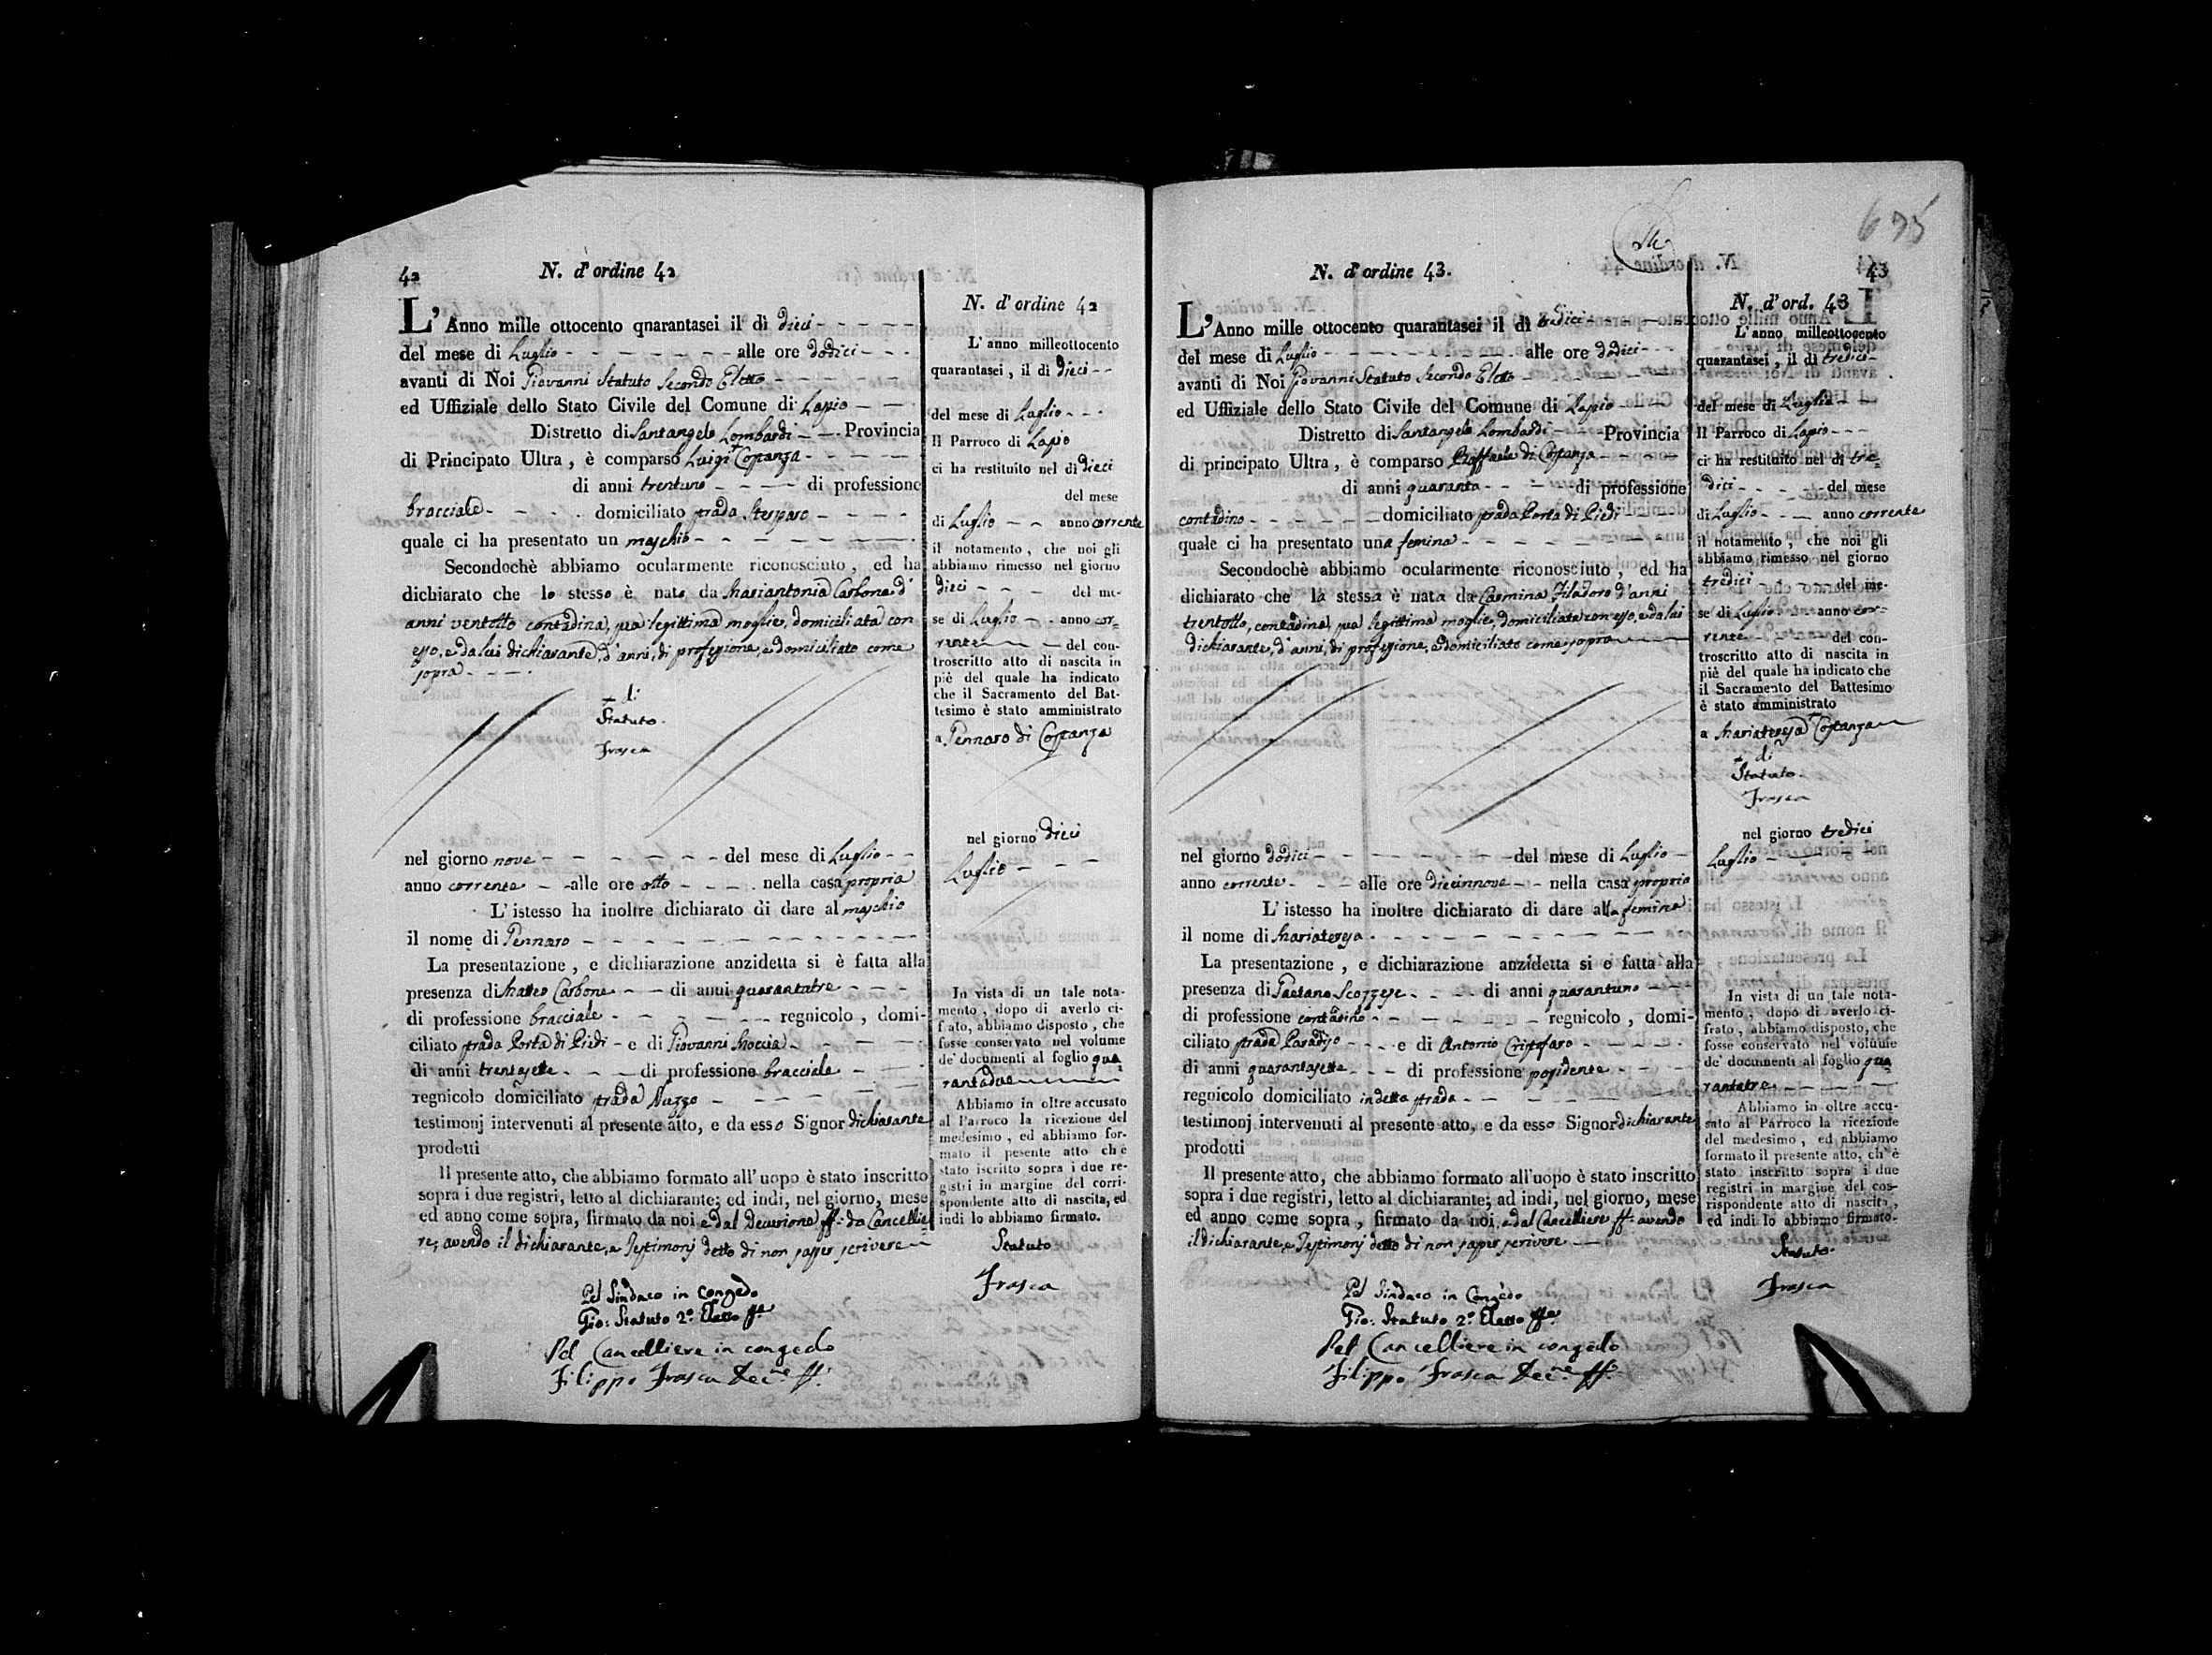 42
N. d' ordine 42
L' Anno mille ottocento qnarantasei il dì dieci
del mese di Luglio alle ore dodici
avanti di Noi Giovanni Statuto Secondo Eletto
ed Uffiziale dello Stato Civile del Comune di Lapio
Distretto di Santangelo Lombardi Provincia
di Principato Ultra, è comparso Luigi + Costanza
di anni trentuno di professione
bracciale domiciliato strada
quale ci ha presentato un maschio
Secondochè abbiamo ocularmente riconosciuto, ed ha
dichiarato che lo stesso è nato da Mariantonia Carbone d'
anni ventotto contadina, sua legittima moglie, domiciliata con
esso, e da lui dichiarante, d'anni, di professione, e domiciliato come
sopra
+ di
Statuto.
Frasca
nel giorno nove del mese di Luglio
anno corrente alle ore otto nella casa propria
L' istesso ha inoltre dichiarato di dare al maschio
il nome di Gennaro
La presentazione, e dichiarazione anzidetta si è fatta alla
presenza di Matteo Carbone di anni quarantatre
di professione bracciale regnicolo, domi-
ciliato strada Porta di Piedi e di Giovanni Moccia
di anni trentasette di professione bracciale
regnicolo domiciliato strada Nuzzo
testimonj intervenuti al presente atto, e da esso Signor dichiarante
prodotti
Il presente atto, che abbiamo formato all'uopo è stato inscritto
sopra i due registri, letto al dichiarante; ed indi, nel giorno, mese
ed anno come sopra, firmato da noi, e dal Decurione ff: da Cancellie
re, avendo il dichiarante, e Testimonj detto di non saper scrivere
Pel Sindaco in congedo
Gio: Statuto 2º Eletto ff:
Pel Cancelliere in congedo
Filippo Frasca Dec.ne ff:
N. d' ordine 42
L' anno milleottocento
quarantasei, il dì dieci
del mese di Luglio
Il Parroco di Lapio
ci ha restituito nel dì dieci
del mese
di Luglio anno corrente
il notamento, che noi gli
abbiamo rimesso nel giorno
dieci del me-
se di Luglio anno cor=
rente del con-
troscritto atto di nascita in
piè del quale ha indicato
che il Sacramento del Bat-
tesimo è stato amministrato
a Gennaro di Costanza
nel giorno dieci
Luglio
In vista di un tale nota-
mento, dopo di averlo ci-
frato, abbiamo disposto, che
fosse conservato nel volume
de' documenti al foglio qua
rantadue
Abbiamo in oltre accusato
al Parroco la ricezione del
medesimo, ed abbiamo for-
mato il pesente atto che
stato iscritto sopra i due re-
gistri in margine del corri-
spondente atto di nascita, ed
indi lo abbiamo firmato.
Statuto
Frasca
695
43
N. d' ordine 43.
L' Anno mille ottocento quarantasei il dì tredici
del mese di Luglio alle ore dodici
avanti di Noi Giovanni Statuto Secondo Eletto
ed Uffiziale dello Stato Civile del Comune di Lapio
Distretto di Santangelo Lombardi Provincia
di principato Ultra, è comparso Raffaele di Costanza
di anni quaranta di professione
contadino domiciliato strada Porta di Piedi
quale ci ha presentato una femina
Secondochè abbiamo ocularmente riconosciuto, ed ha
dichiarato che la stessa è nata da Carmina Filadoro d'anni
trentotto, contadina, sua legittima moglie, domiciliata con esso, e da lui
dichiarante, d'anni, di professione, e domiciliato come sopra
nel giorno dodici del mese di Luglio
anno corrente alle ore diecinnove nella casa propria
L' istesso ha inoltre dichiarato di dare alla femina
il nome di Mariateresa
La presentazione, e dichiarazione anzidetta si e fatta alla
presenza di Gaetano Scozzese di anni quarantuno
di professione contadino regnicolo, domi-
ciliato strada Paradiso e di Antonio Cristofaro
di anni quarantasette di professione posidente
regnicolo domiciliato in detta strada
testimonj intervenuti al presente atto, e da esso Signor dichiarante
prodotti
Il presente atto, che abbiamo formato all'uopo è stato inscritto
sopra i due registri, letto al dichiarante; ad indi, nel giorno, mese
ed anno come sopra, firmato da noi, e dal Cancelliere ff: avendo
il dichiarante, e Testimonj detto di non saper scrivere
Pel Sindaco in Congedo
Gio: Statuto 2º Eletto ff:
Pel Cancelliere in congedo
Filippo Frasca Dec.ne ff:
N. d' ord. 43
L' anno milleottocento
quarantasei, il dì tredici
del mese di Luglio
Il Parroco di Lapio
ci ha restituito nel dì tre=
dici del mese
di Luglio anno corrente
il notamento, che noi gli
abbiamo rimesso nel giorno
tredici del me-
se di Luglio anno cor=
rente del con-
troscritto atto di nascita in
piè del quale ha indicato che
il Sacramento del Battesimo
è stato amministrato
a Mariateresa + Costanza
+ di
Statuto.
Frasca
nel giorno tredici
Luglio
In vista di un tale nota-
mento, dopo di averlo ci-
frato, abbiamo disposto, che
fosse conservato nel volume
de' documenti al foglio qua
rantatre
Abbiamo in oltre accu-
sato al Parroco la ricezione
del medesimo, ed abbiamo
formato il presente atto, ch' è
stato inscritto sopra i due
registri in margine del cor-
rispondente atto di nascita,
ed indi lo abbiamo firmato.
Statuto.
Frasca